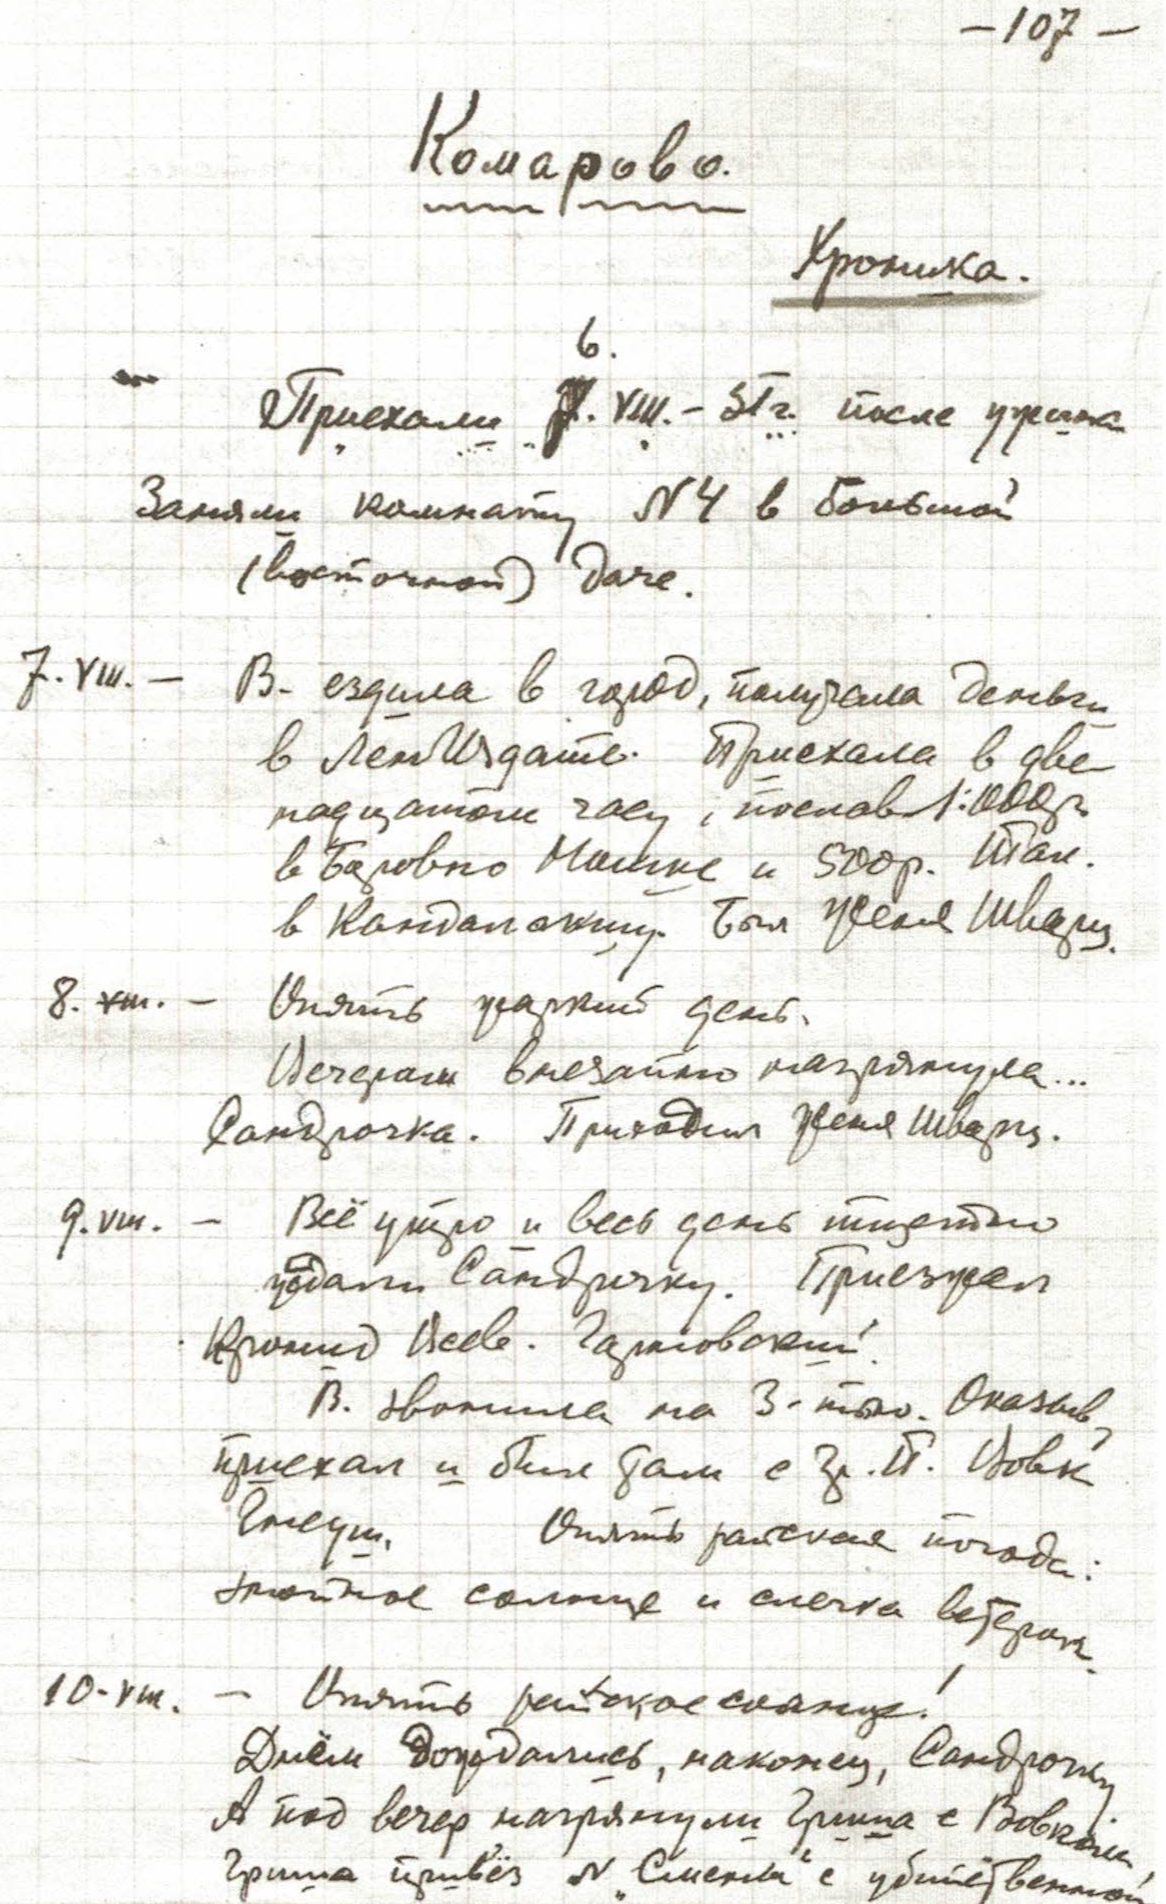 – 107 –
Комарово.
Хроника.
6.
Приехали VIII. – 51 г. после ужина
Заняли комнату N 4 в Большой
(восточной) даче.
7. VIII. – В. ездила в город, получала деньги
в ЛенИздате. Приехала в две
надцатом часу, послав 1.000 р.
в Боровно и 500 р. Там.
в Кандалакшу. Был Женя Шварц.
8. VIII. – Опять жаркий день.
Вечером внезапно нагрянула...
Сандрочка. Приходил Женя Шварц.
9. VIII. – Всё утро и весь день тщетно
ждали Сандрочку. Приезжал
Кронид Всев. Гарновский.
В. звонила на 3-тью. Оказыв,
приехал и был там с Гр. П. Вовк
Опять райская погода:
знойное солнце и слегка ветерок.
10. VIII. – Опять райское солнце!
Днём дождались, наконец, Сандрочку
А под вечер нагрянули Гриша с Вовкой,
Гриша привёз N „Смены“ с убийственной